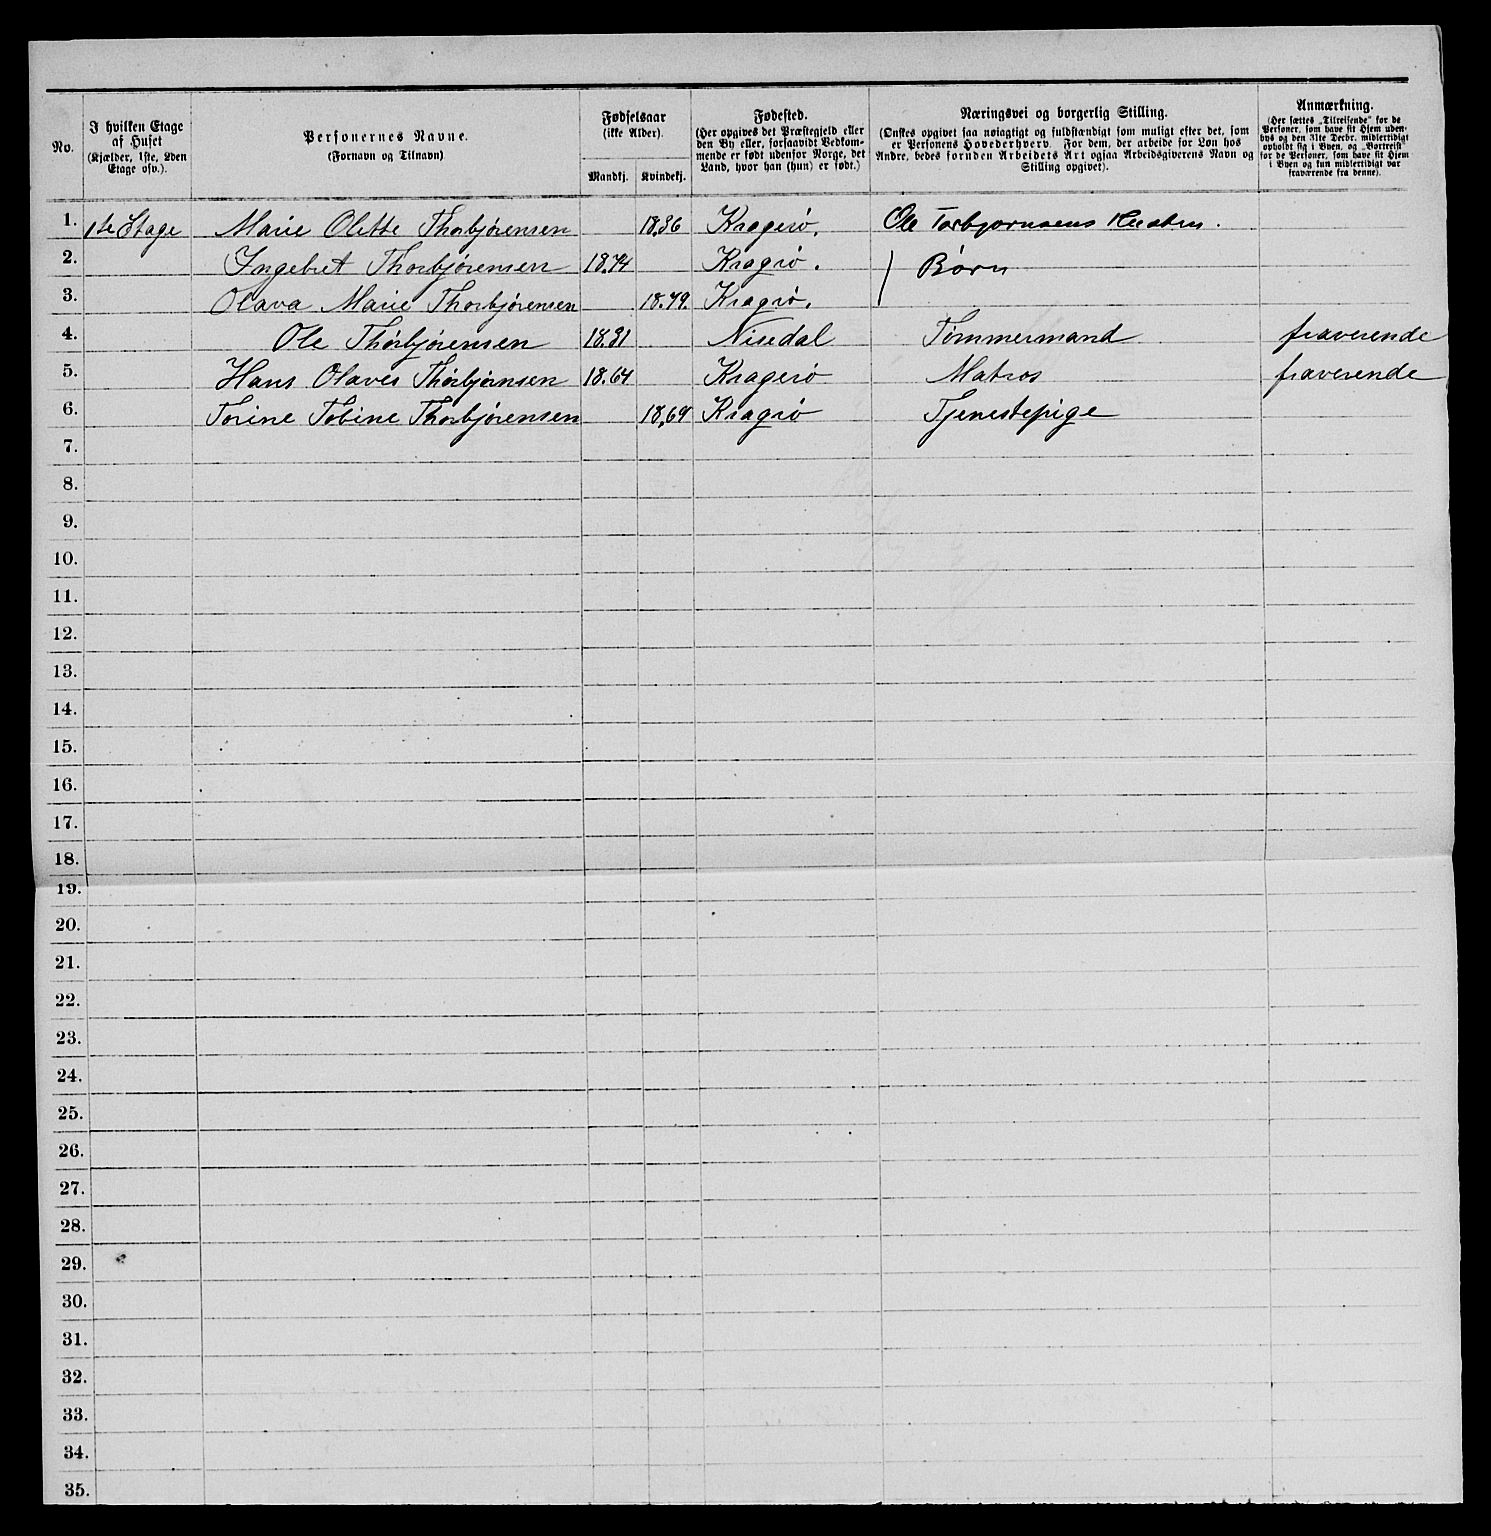 No.
I hvilken Etage af Huset (Kjælder, 1ste, 2den Etage osv.).
Personernes Navne. (Fornavn og Tilnavn)
Fødselsaar (ikke Alder).
Mandkj. Kvindekj.
Fødested. (Her opgives det Præstegjeld eller den By eller, forsaavidt Vedkommende er født udenfor Norge, det Land, hvor han (hun) er født.)
Næringsvei og borgerlig Stilling. (Ønskes opgivet saa nøiagtigt og fuldstændigt som muligt efter det, som er Personens Hovederhverv. For dem, der arbeide for Løn hos Andre, bedes foruden Arbeidets Art ogsaa Arbeidsgiverens Navn og Stilling opgivet).
Anmærkning. (Her sættes „Tilreisende" for de Personer, som have sit Hjem udenbys og den 31te Decbr. midlertidigt opholdt sig i Byen, og „Bortreist" for de Personer, som have sit Hjem i Byen og kun midlertidigt var fraværende fra denne).
1. 1ste Etage Marie Olette Thorbjørensen 18.36 Kragerö. Ole Torbjornsens Hustru.
2. Ingebret Thorbjørensen 18.74 Kragrö. Børn
3. Olava Marie Thorbjørensen 18.79. Kragrö.
4. Ole Thorbjørensen 18.31 Nisedal Tømmermand fraverende
5. Hans Olaves Thorbjørnsen 18.64 Kragerö Matros fraverende
6. Torine Tobine Thorbjørensen 18,69 Kragrö Tjenestepige
7.
8.
9.
10.
11.
12.
13.
14.
15.
16.
17.
18.
19.
20.
21.
22.
23.
24.
25.
26.
27.
28.
29.
30.
31.
32.
33.
34.
35.